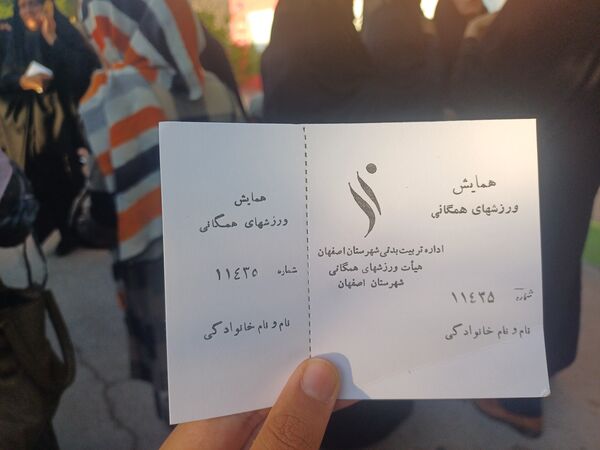 همایش
ورزشهای همگانی
اداره تربیت بدنی شهرستان اصفهان
هیأت ورزشهای همگانی
شهرستان اصفهان
شماره ۱۱۴۳۵
نام و نام خانوادگی
همایش
ورزشهای همگانی
شماره ۱۱۴۳۵
نام و نام خانوادگی